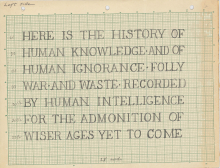 HERE IS THE HISTORY OF
HUMAN KNOWLEDGE·AND OF
HUMAN IGNORANCE·FOLLY
WAR·AND WASTE·RECORDED
BY HUMAN INTELLIGENCE
FOR THE ADMONITION OF
WISER AGES YET TO COME